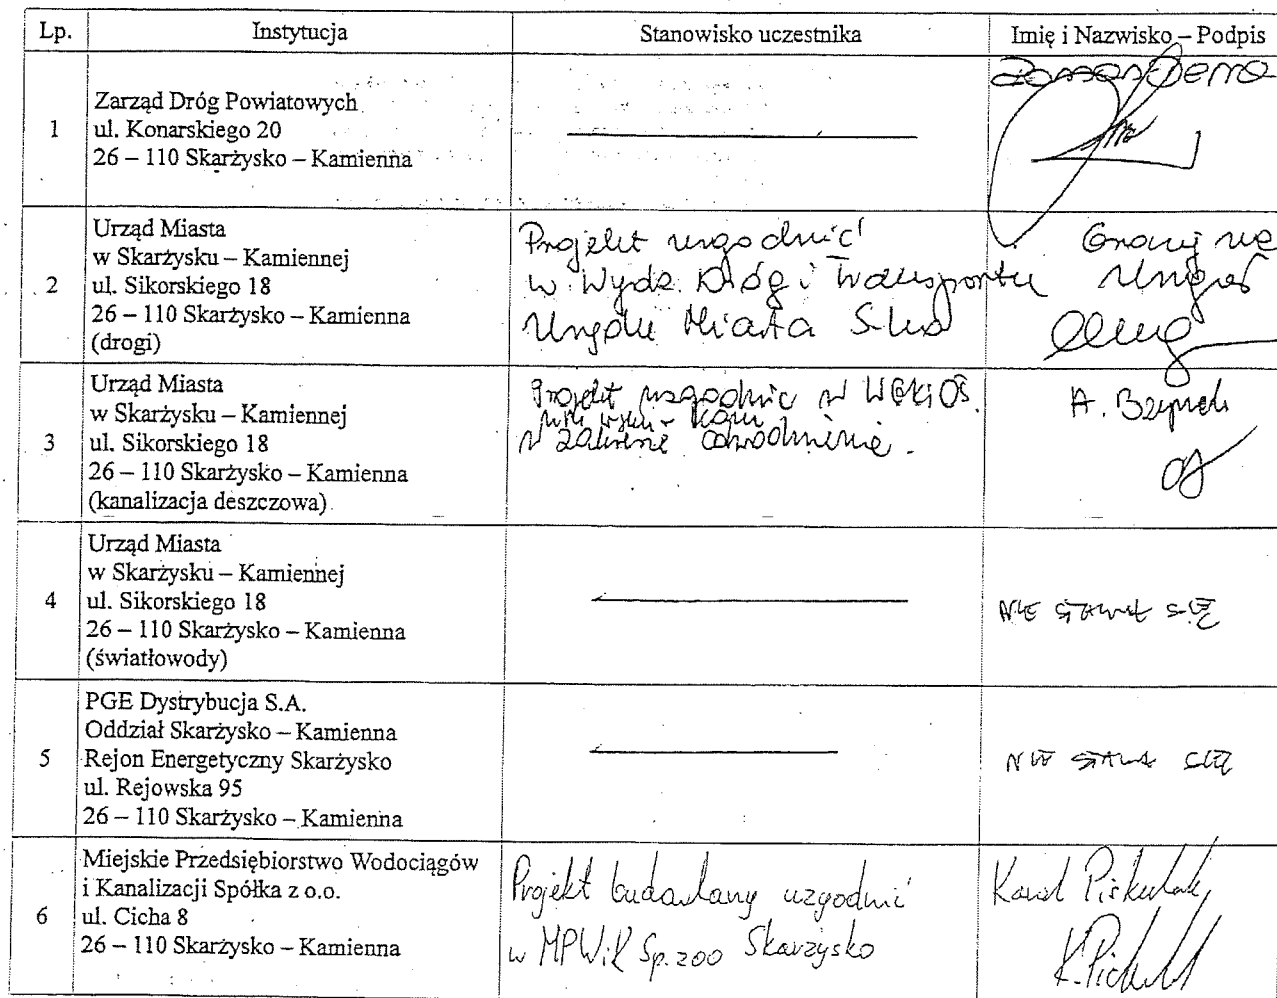 Lp. Instytucja Stanowisko uczestnika Imię i Nazwisko – Podpis
1
Zarząd Dróg Powiatowych
ul. Konarskiego 20
26 – 110 Skarżysko – Kamienna
2
Urząd Miasta
w Skarżysku – Kamiennej
ul. Sikorskiego 18
26 – 110 Skarżysko – Kamienna
(drogi)
Projekt uzgodnić
w Wydz. Dróg i Transportu
Urzędu Miasta
3
Urząd Miasta
w Skarżysku – Kamiennej
ul. Sikorskiego 18
26 – 110 Skarżysko – Kamienna
(kanalizacja deszczowa)
Projekt uzgodnić w
w zakresie odwodnienia.
A.
4
Urząd Miasta
w Skarżysku – Kamiennej
ul. Sikorskiego 18
26 – 110 Skarżysko – Kamienna
(światłowody)
NIE STAWIŁ SIĘ
5
PGE Dystrybucja S.A.
Oddział Skarżysko – Kamienna
Rejon Energetyczny Skarżysko
ul. Rejowska 95
26 – 110 Skarżysko – Kamienna
NIE STAWIŁ SIĘ
6
Miejskie Przedsiębiorstwo Wodociągów
i Kanalizacji Spółka z o.o.
ul. Cicha 8
26 – 110 Skarżysko – Kamienna
Projekt budowlany uzgodnić
w MPWiK Sp. zoo Skarżysko
Karol